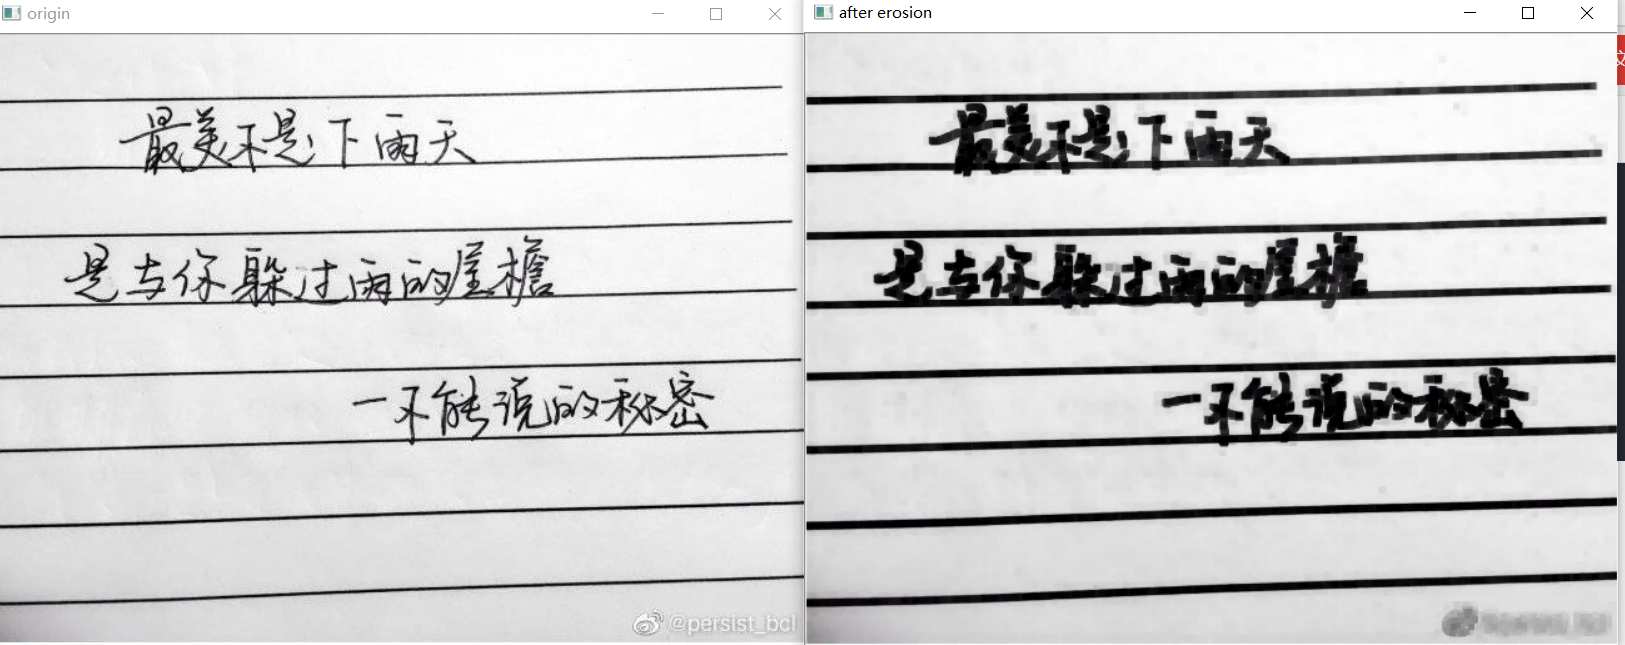 origin
最美不是下雨天
是与你躲过雨的屋檐
一不能说的秘密
@persist_bcl
after erosion
最美不是下雨天
是与你躲过雨的屋檐
一不能说的秘密